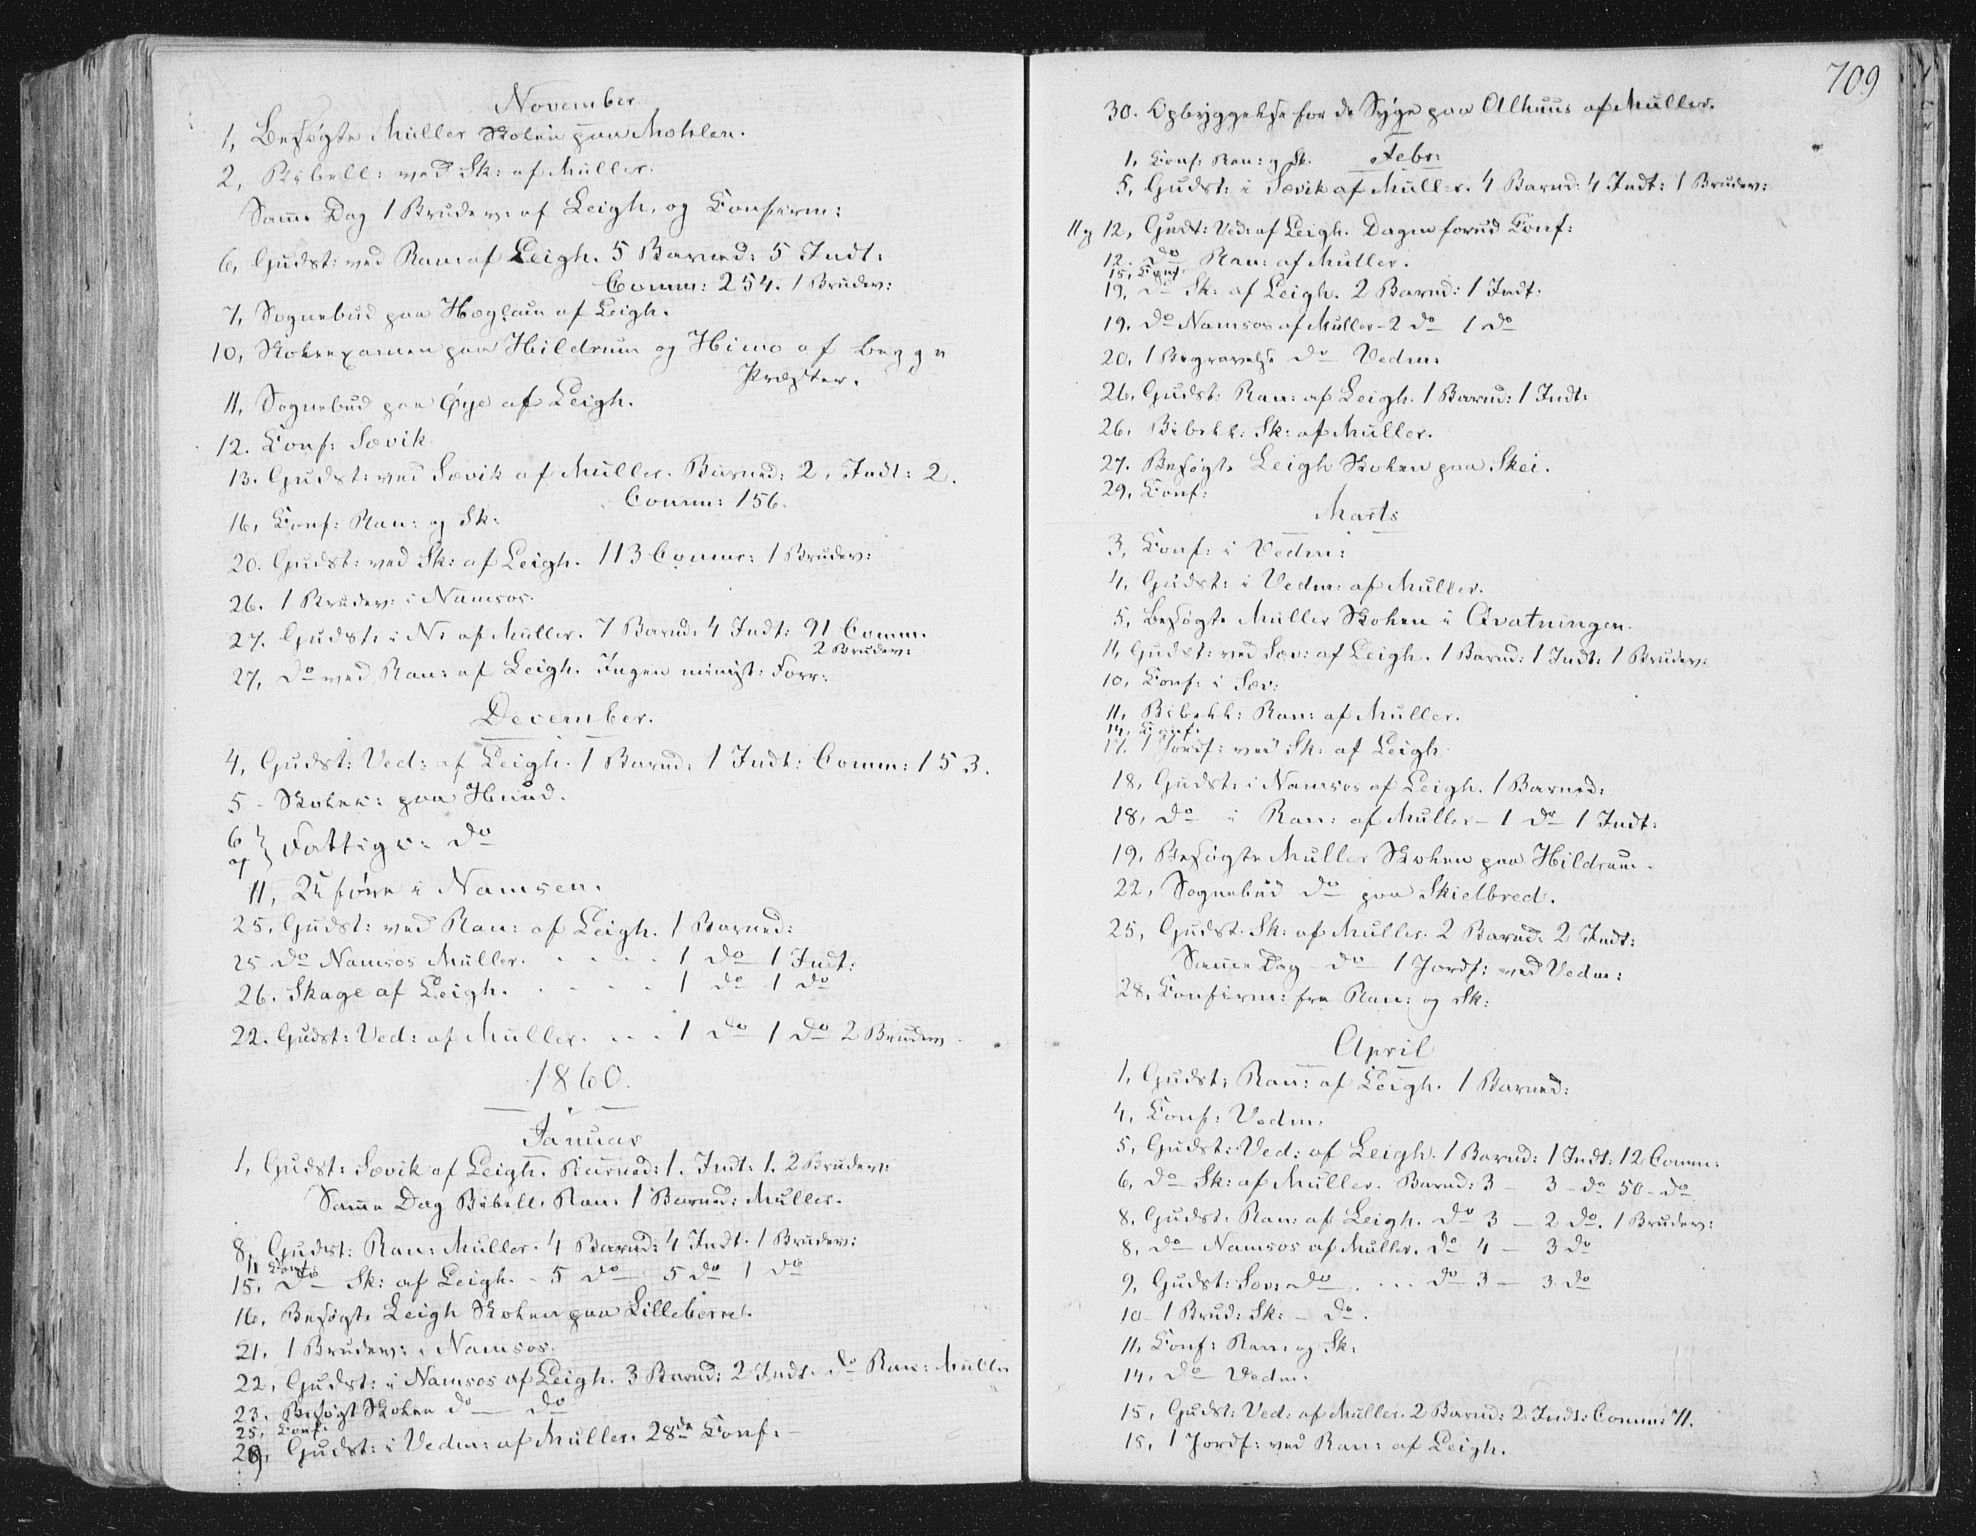 November
1, Besøgte Müller Skolen paa Mohlen.
2, Bibell: ved Sk: af Müller.
Samme Dag 1 Brudev: af Leigh, og Confirm:
6, Gudst: ved Ran: af Leigh. 5 Barned: 5 Indt:
Comm: 254. 1 Brudev:
7, Sognebud paa Høglaun af Leigh.
10, Skolexamen paa Hildrum og Himo af begge
Præster.
11, Sognebud paa Øye af Leigh.
12. Conf: Sævik
13. Gudst: ved Sævik af Müller. Barned: 2. Indt: 2.
Comm: 156.
16, Conf: Ran: og Sk:
20. Gudst: ved Sk: af Leigh. 113 Comm: 1 Brudev:
26. 1 Brudev: i Namsos.
27. Gudst: i N: af Müller. 7 Barnd: 4 Indt: 91 Comm.
2 Brudev:
27, do ved Ran: af Leigh. Ingen minist: Forr:
December.
4, Gudst: Ved: af Leigh. 1 Barnd: 1 Indt: Comm: 153.
5 - Skolek: paa Hund.
6
7 } Fattigc: do
11, Uføre i Namsen.
25, Gudst: ved Ran: af Leigh. 1 Barned:
25 do Namsos Müller. . . . . 1 do 1 Indt:
26. Skage af Leigh. . . . . 1 do 1 do
22. Gudst: Ved: af Müller. . . . 1 do 1 do 2 Brudev
1860.
Januar
1, Gudst: Sævik af Leigh. Barned: 1. Indt: 1. 2 Brudev:
Samme Dag Bibell. Ran: 1 Barned: Müller.
8, Gudst: Ran: Müller. 4 Barnd: 4 Indt. 1 Brudev:
11 Conf:
15, do Sk: af Leigh. - 5 do 5 do 1 do
16, Besøgte Leigh Skolen paa Lilleberre.
21. 1 Brudev: i Namsos.
22, Gudst: i Namsos af Leigh. 3 Barnd: 2 Indt. do Ran: Müller
23. Besøgt Skolen do do
25, Conf.
29, Gudst: i Vedm: af Müller. 28de Conf: -
709
30. Opbyggelse for de Syge paa Alhuus af Müller.
Febr:
1, Conf: Ran: og Sk.
5, Gudst: i Sævik af Müller. 4 Barnd: 4 Indt: 1 Brudev:
11 og 12, Gudst: Ved: af Leigh. Dagen forud Conf:
12. do Ran: af Müller.
15, Conf.
19, do Sk: af Leigh. 2 Barnd: 1 Indt:
19. do Namsos af Müller - 2 do 1 do
20, 1 Begravelse do Vedm:
26, Gudst: Ran: af Leigh. 1 Barnd: 1 Indt:
26, Bibell: Sk: af Müller.
27. Besøgte Leigh Skolen paa Skei.
29, Conf:
Marts
3, Conf: i Vedm:
4, Gudst: i Vedm: af Müller.
5, Besøgte Müller Skolen i Avatningen.
11, Gudst: ved Sæv: af Leigh. 1 Barnd: 1 Indt: 1 Brudev:
10, Conf: i Sæv:
11, Bibell: Ran: af Müller.
14, Conf.
17. 1 Jordf: ved Sk: af Leigh.
18, Gudst: i Namsos af Leigh. 1 Barned:
18, do i Ran: af Müller - 1 do 1 Indt:
19. Besøgte Müller Skolen paa Hildrum.
22, Sognebud do paa Skielbred.
25, Gudst. Sk: af Müller. 2 Barnd: 2 Indt:
Samme Dag do 1 Jordf: ved Vedm:
28, Confirm: fra Ran: og Sk:
April
1, Gudst: Ran: af Leigh. 1 Barned:
4, Conf: Vedm.
5, Gudst: Ved: af Leigh. 1 Barnd: 1 Indt: 12 Comm:
6, do Sk: af Müller. Barnd: 3 - 3 - do 50 - do
8, Gudst. Ran: af Leigh. do 3 - 2 do. 1 Brudev:
8, do Namsos af Müller. do 4 - 3 do
9, Gudst: Sæv: do . . . do 3 - 3 do
10 - 1 Brud: Sk: - do.
11, Conf: Ran: og Sk.
14, do Vedm.
15, Gudst: Ved: af Müller. 2 Barnd: 2 Indt: Comm: 71.
15, 1 Jordf: ved Ran: af Leigh.